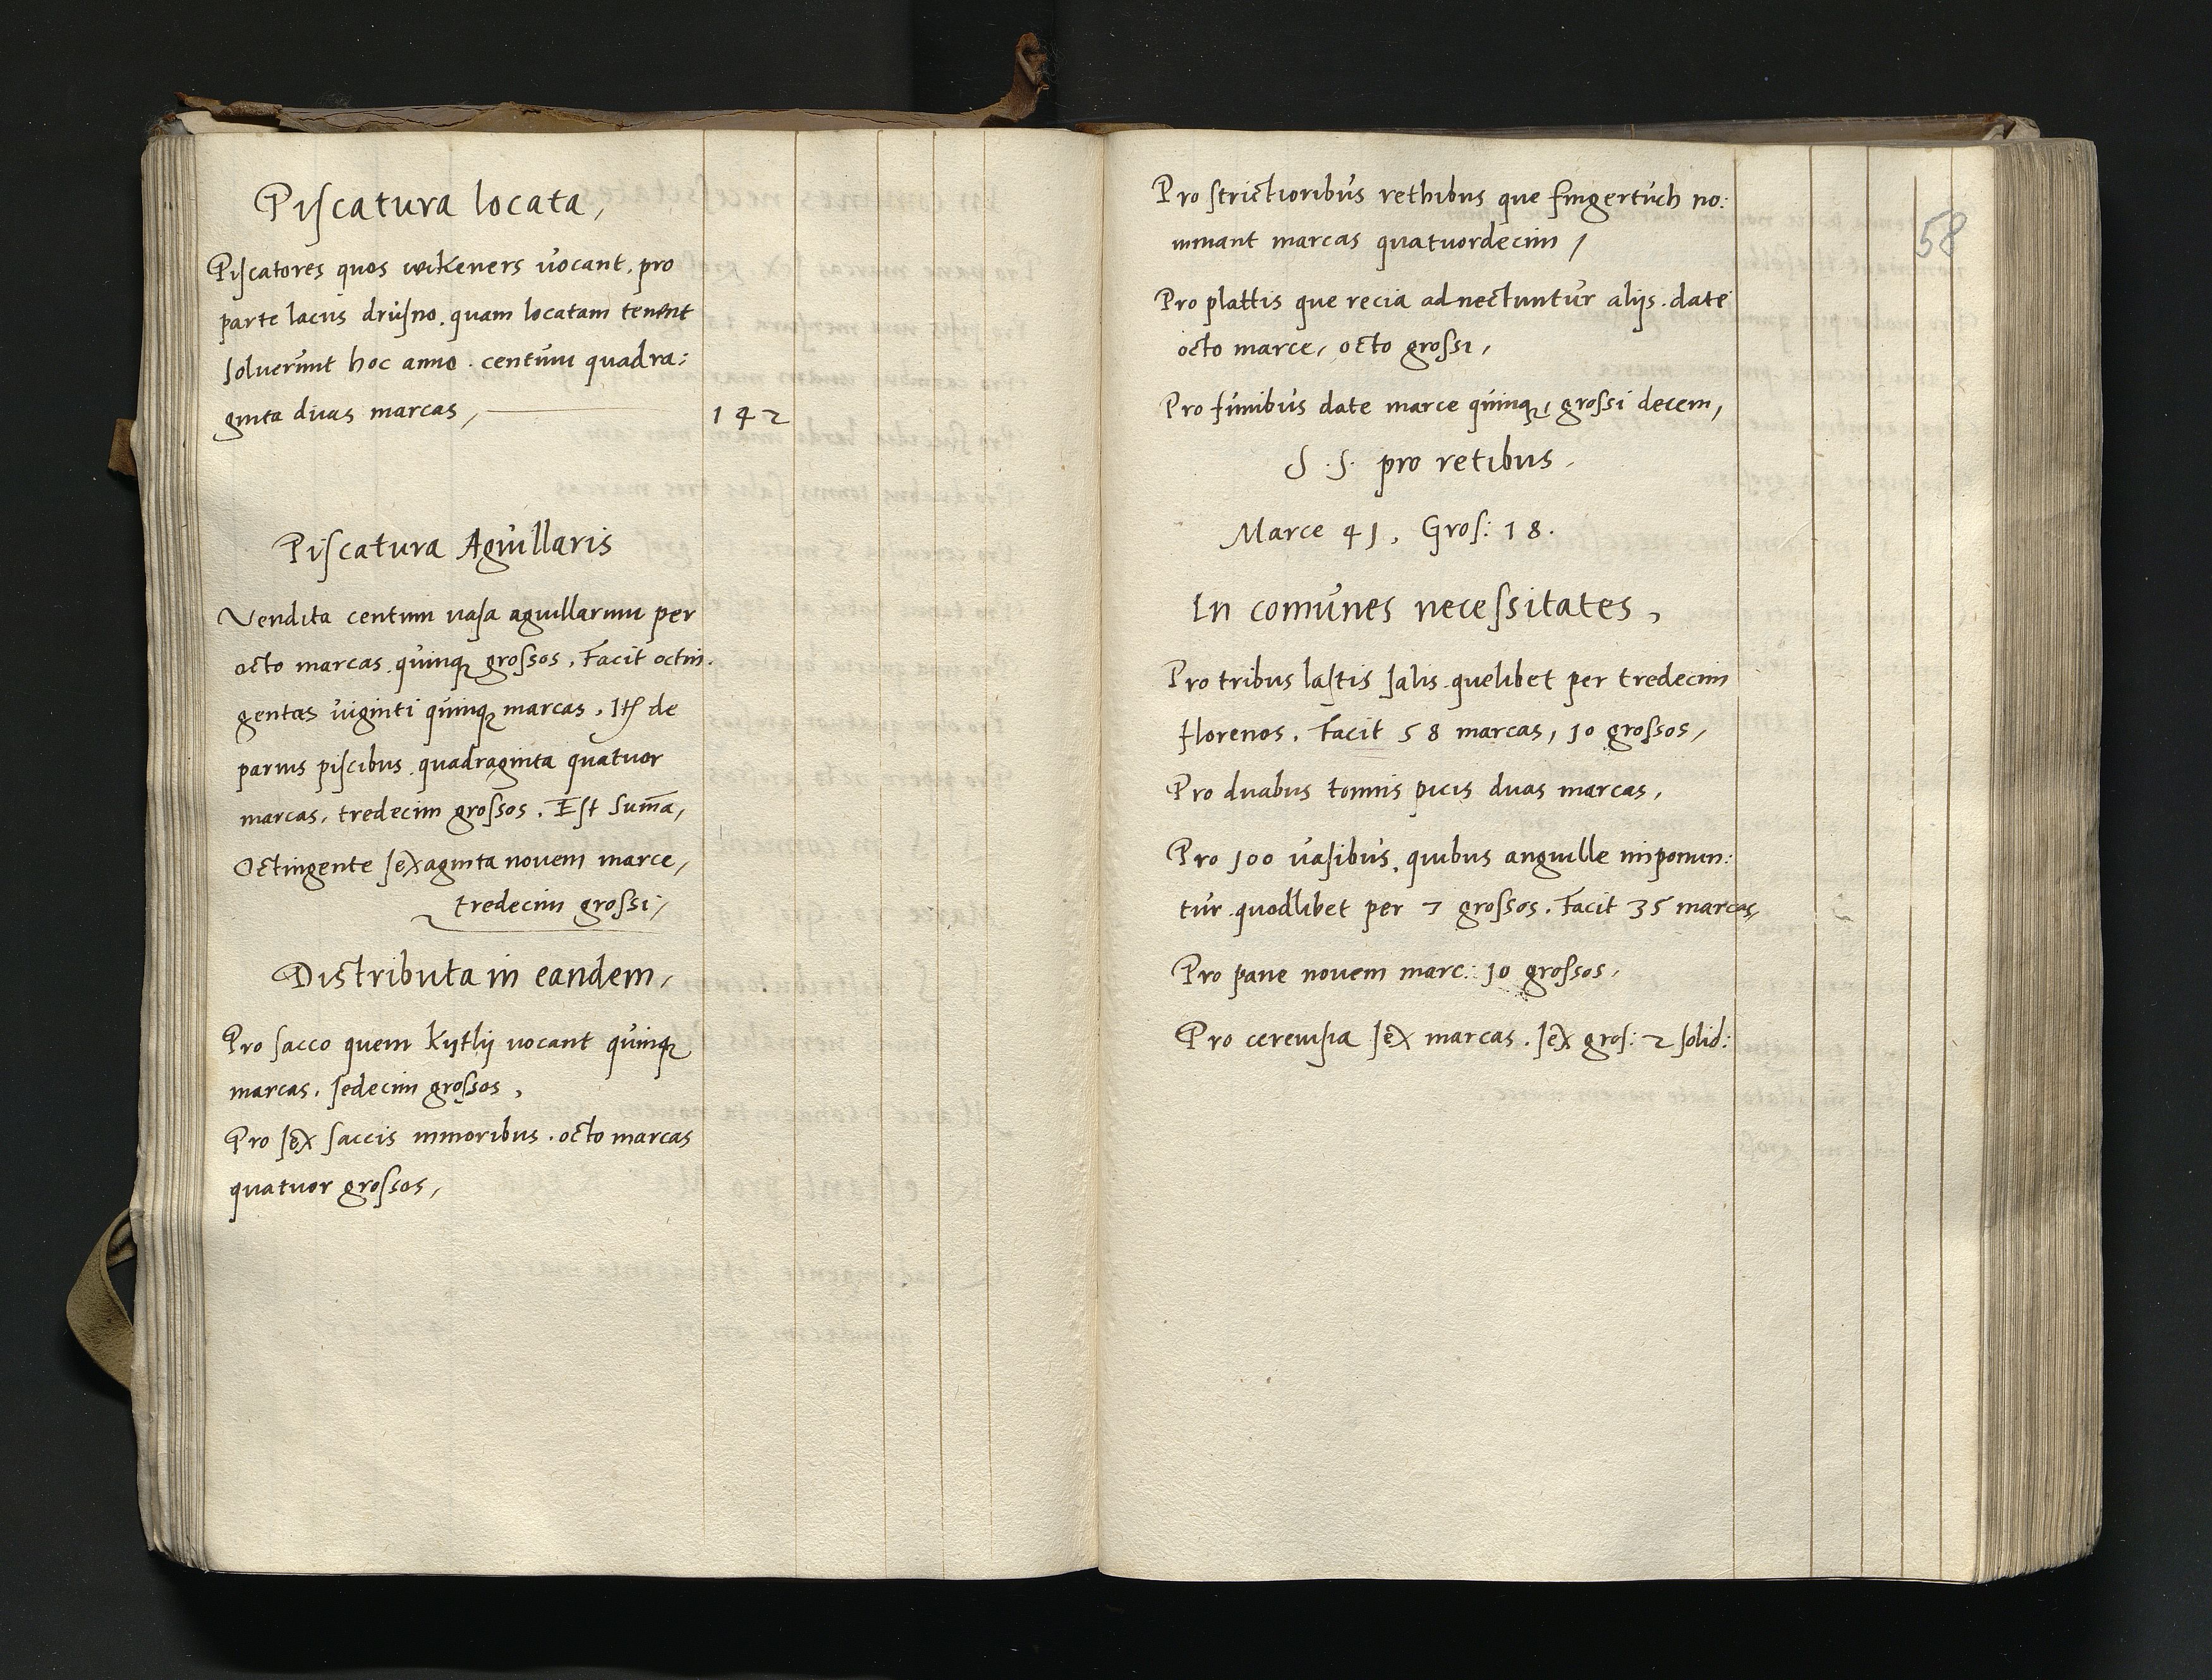 Piscatura locata,
Piscatores quos wikeners vocant. pro
parte lacus drusno. quam locatam tenent
soluerunt hoc anno. centum quadra:
ginta duas marcas, 142
Piscatura Aguillaris
Vendita centum uasa aguillarum per
octo marcas quinq grossos, Facit octin.
gentas uiginti quinq marcas. Itē de
paruis piscibus quadraginta quatuor
marcas, tredecim grossos. Est sum̄a,
Octingente sexaginta nouem marce,
tredecim grossi,
Distributa in eandem,
Pro sacco quem kytlÿ uocant quinq
marcas. sedecim grossos,
Pro sex saccis minoribus. octo marcas
quatuor grossos,
58
Pro strictioribus rethibus que fingertuch no:
minant marcas quatuordecim,
Pro plattis que recia adnectuntur alijs. date
octo marce, octo grossi,
Pro funibus date marce quinq, grossi decem,
S. S. pro retibus.
Marce 41, Gros: 18.
In comunes necessitates,
Pro tribus lastis salis quelibet per tredecim
florenos. Facit 58 marcas, 10 grossos,
Pro duabus tonnis picis duas marcas,
Pro 100 uasibus, quibus anguille imponun:
tur. quodlibet per 7 grossos. Facit 35 marcas,
Pro pane nouem marc: 10 grossos,
Pro cereuisia sex marcas. sex gros: 2 solid: